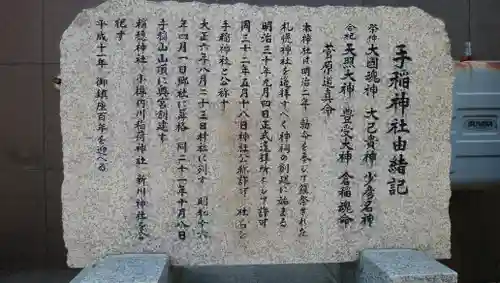 手稲神社由緒記
祭神 大國魂神 大己貴神 少彦名神
合祀 天照大神 豊受大神 倉稲魂命
菅原道真命
本神社は明治二年 勅令を奉じて鎮祭された
札幌神社を遥拝すべく神祠の創建に始まる
明治三十年九月四日正式遥拝所として許可
同三十二年五月十八日神社公称許可 社名を
手稲神社と公称す
大正六年八月二十三日村社に列す 昭和十六
年四月一日郷社に昇格 同二十一年十月八日
手稲山山頂に奥宮創建す
稲穂神社 小樽内川稲荷神社 新川神社を合
祀す
平成十一年 御鎮座百年を迎へる